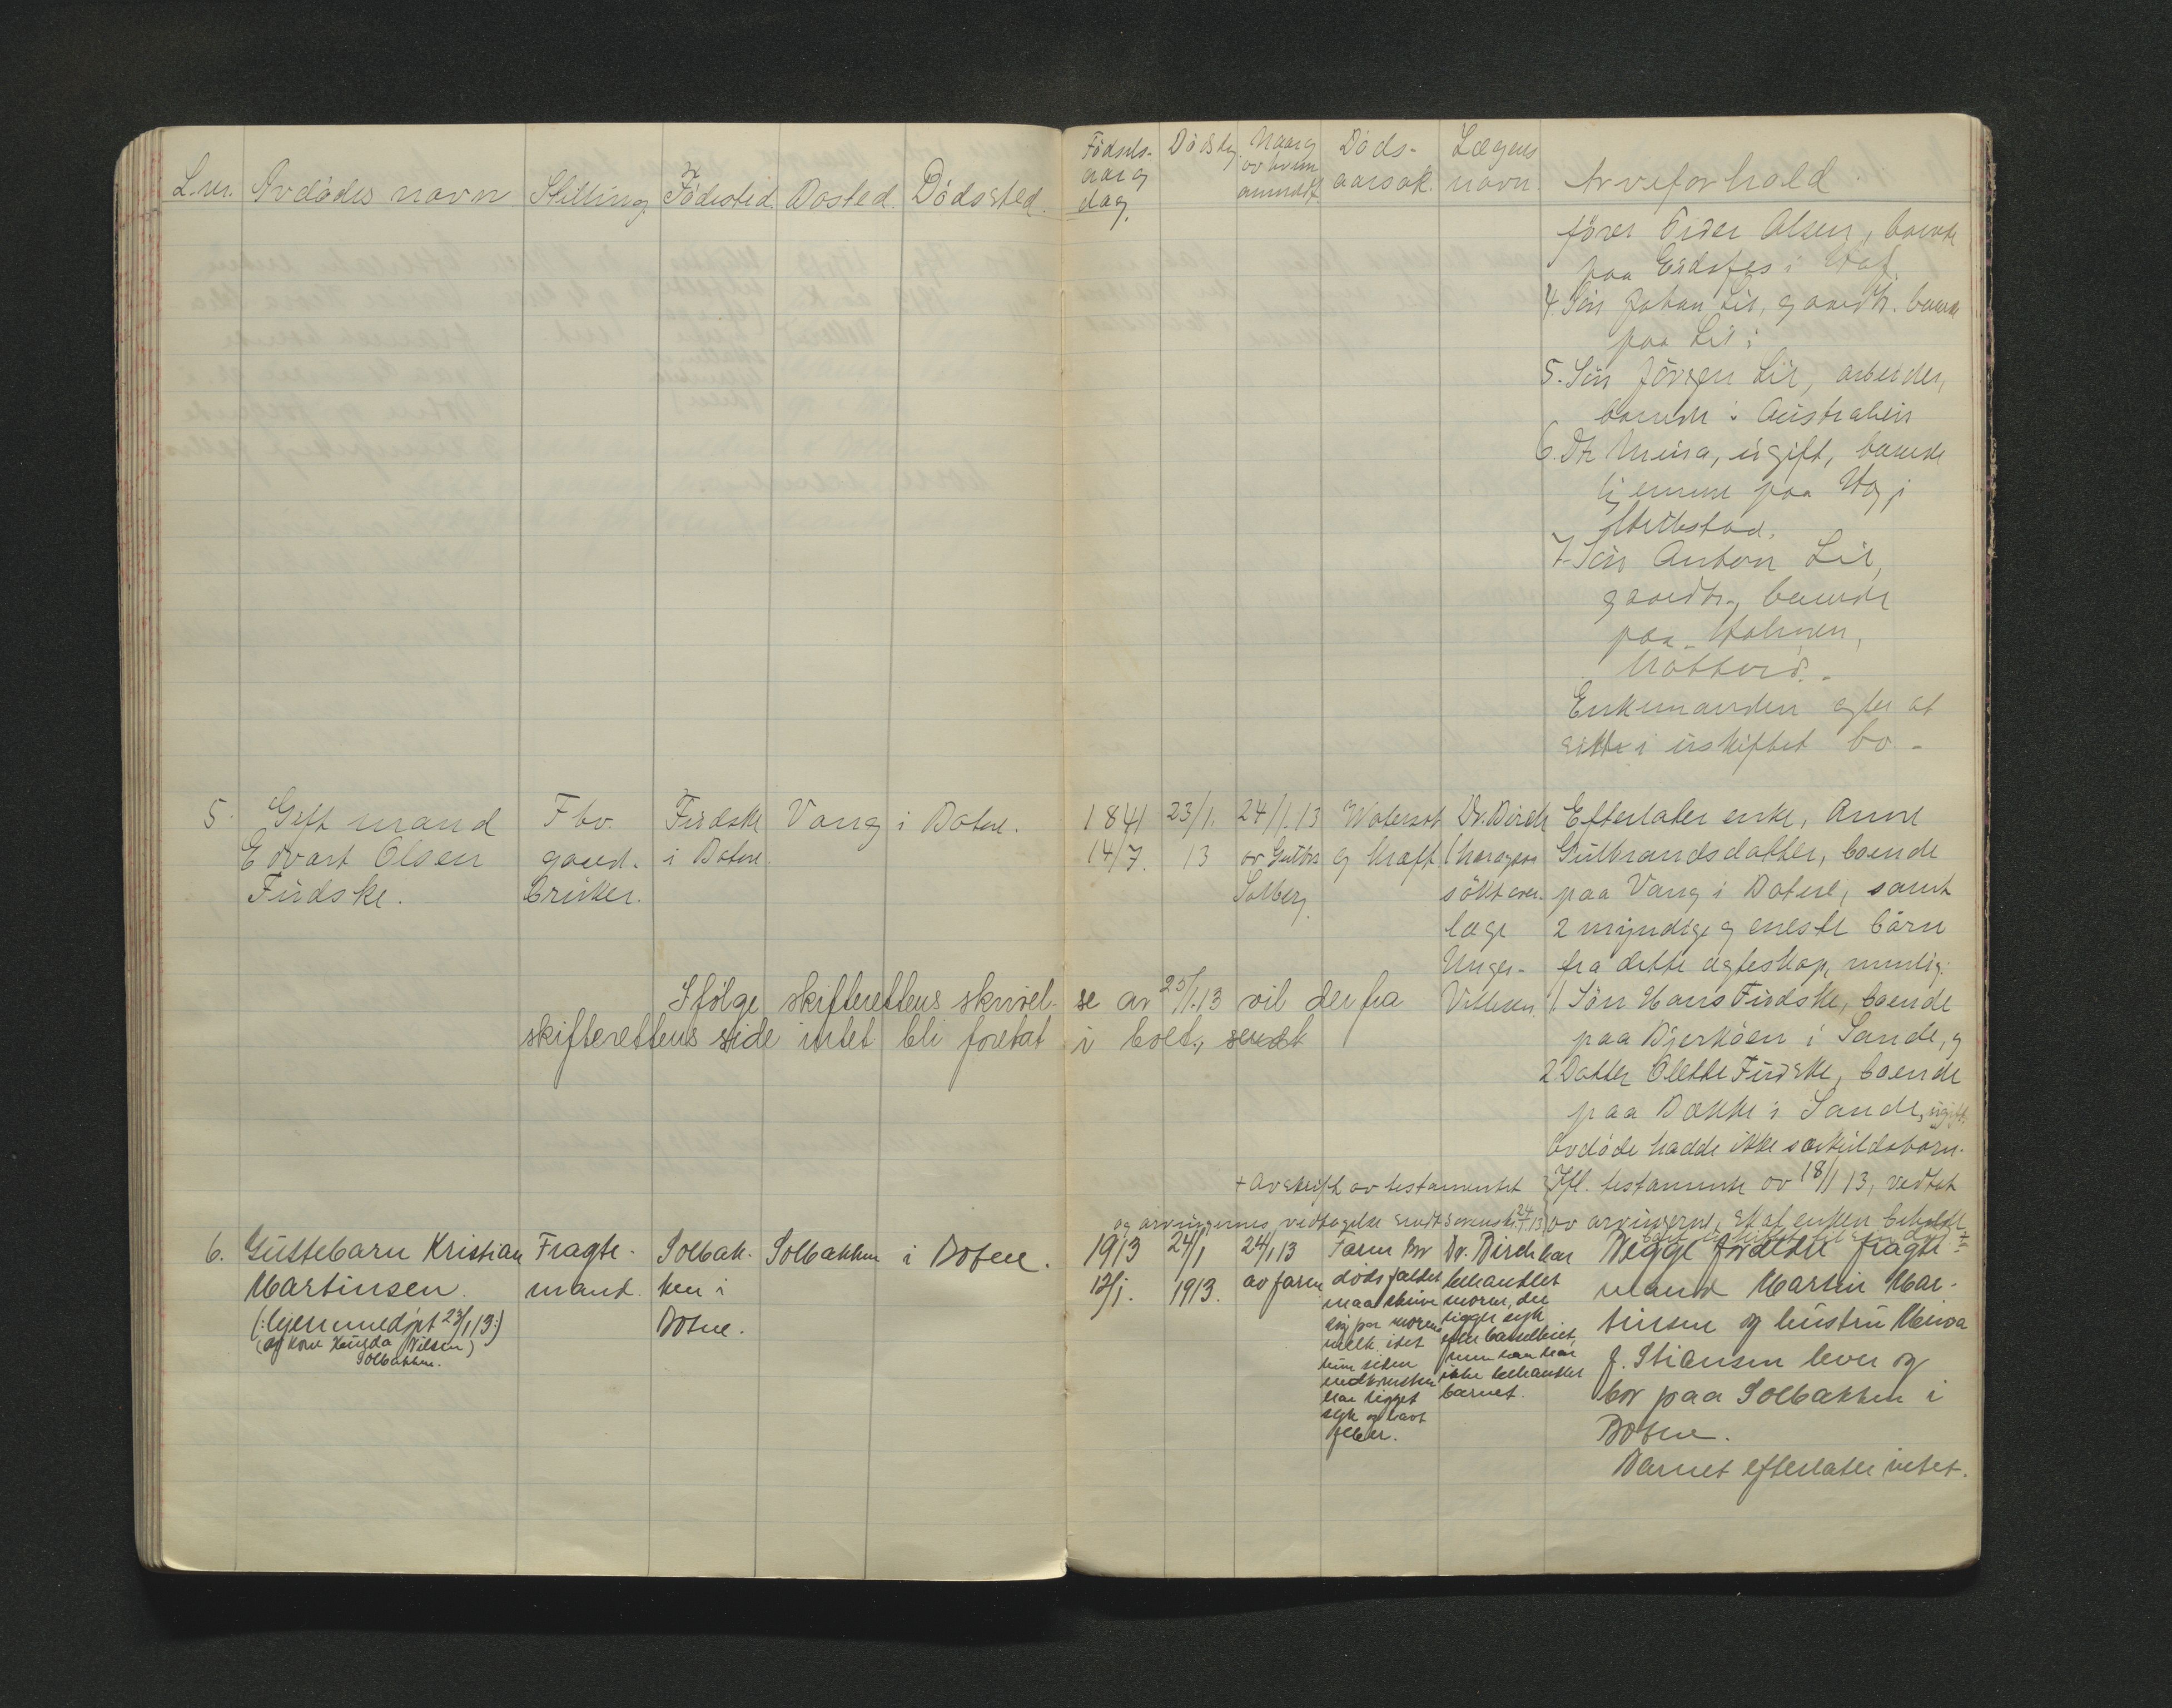 L.nr. Avdødes navn Stilling Fødested. Bosted. Dødssted.
Fødsels-
aar og
dag.
Dødsdag.
Naar og
av hvem
anmeldt
Døds-
aarsak.
Lægens
navn.
Arveforhold.
fører Peder Olsen, boende
paa Eidsfos i Hof.
4. Søn Johan Lie, gaardbr. boende
paa Lie i
5. Søn Jørgen Lie, arbeider,
boende i Australien
6. Dtr. Mina, ugift, boende
hjemme paa
7. Søn Anton Lie,
gaardbr., boende
paa Holmen,
Enkemanden agter at
sitte i uskiftet bo.
5. Gift mand
Edvart Olsen
Firdske.
Fbv.
gaard-
bruker.
Firdske
i Botne.
Vang i Botne.
1841
14/7.
23/1.
13
24/1.13
av
Solberg.
Vatersot
og kræft
Dr. Birch
søkt over-
læge
Unger-
Vetlesen.
Efterlater enke, Anne
Gulbrandsdatter, boende
paa Vang i Botne, samt
2 myndige og eneste børn
fra dette egteskap, nemlig:
1. Søn Hans Firdske, boende
paa Bjerkøen i Sande, og
2 Datter Olette Firdske, boende
paa Bakke i Sande, ugift.
Avdøde hadde ikke særkuldsbarn.
Ifølge skifterettens skrivel-se av 25/1.13 vil der fra
skifterettens side intet bli foretat i boet, sendt
+ Avskrift av testamentet
og arvingernes vedtagelse sendt sorensk. 24/1 13
Ifl. testamente av 18/1 13, vedtat
av arvingerne, skal enken beholde
6. Guttebarn Kristian
Martinsen.
(: hjemmedøpt 23/1 13:)
(av kone Hulda Nilsen)
Solbakken.
Fragte-
mand.
Solbak-
ken i
Botne.
Solbakken i Botne.
1913
12/1.
24/1
1913.
24/1 13
av faren
Faren tror
dødsfaldet
maa skrive
sig fra morens
melk, idet
hun siden
nedkomsten
har ligget
syk og havt
feber.
Dr. Birch har
behandlet
moren, der
ligger syk
efter barselen,
men han har
ikke behandlet
barnet.
Begge forældre fragte-
mand Martin Mar-
tinsen og hustru
f. Stiansen lever og
bor paa Solbakken i
Botne.
Barnet efterlater intet.